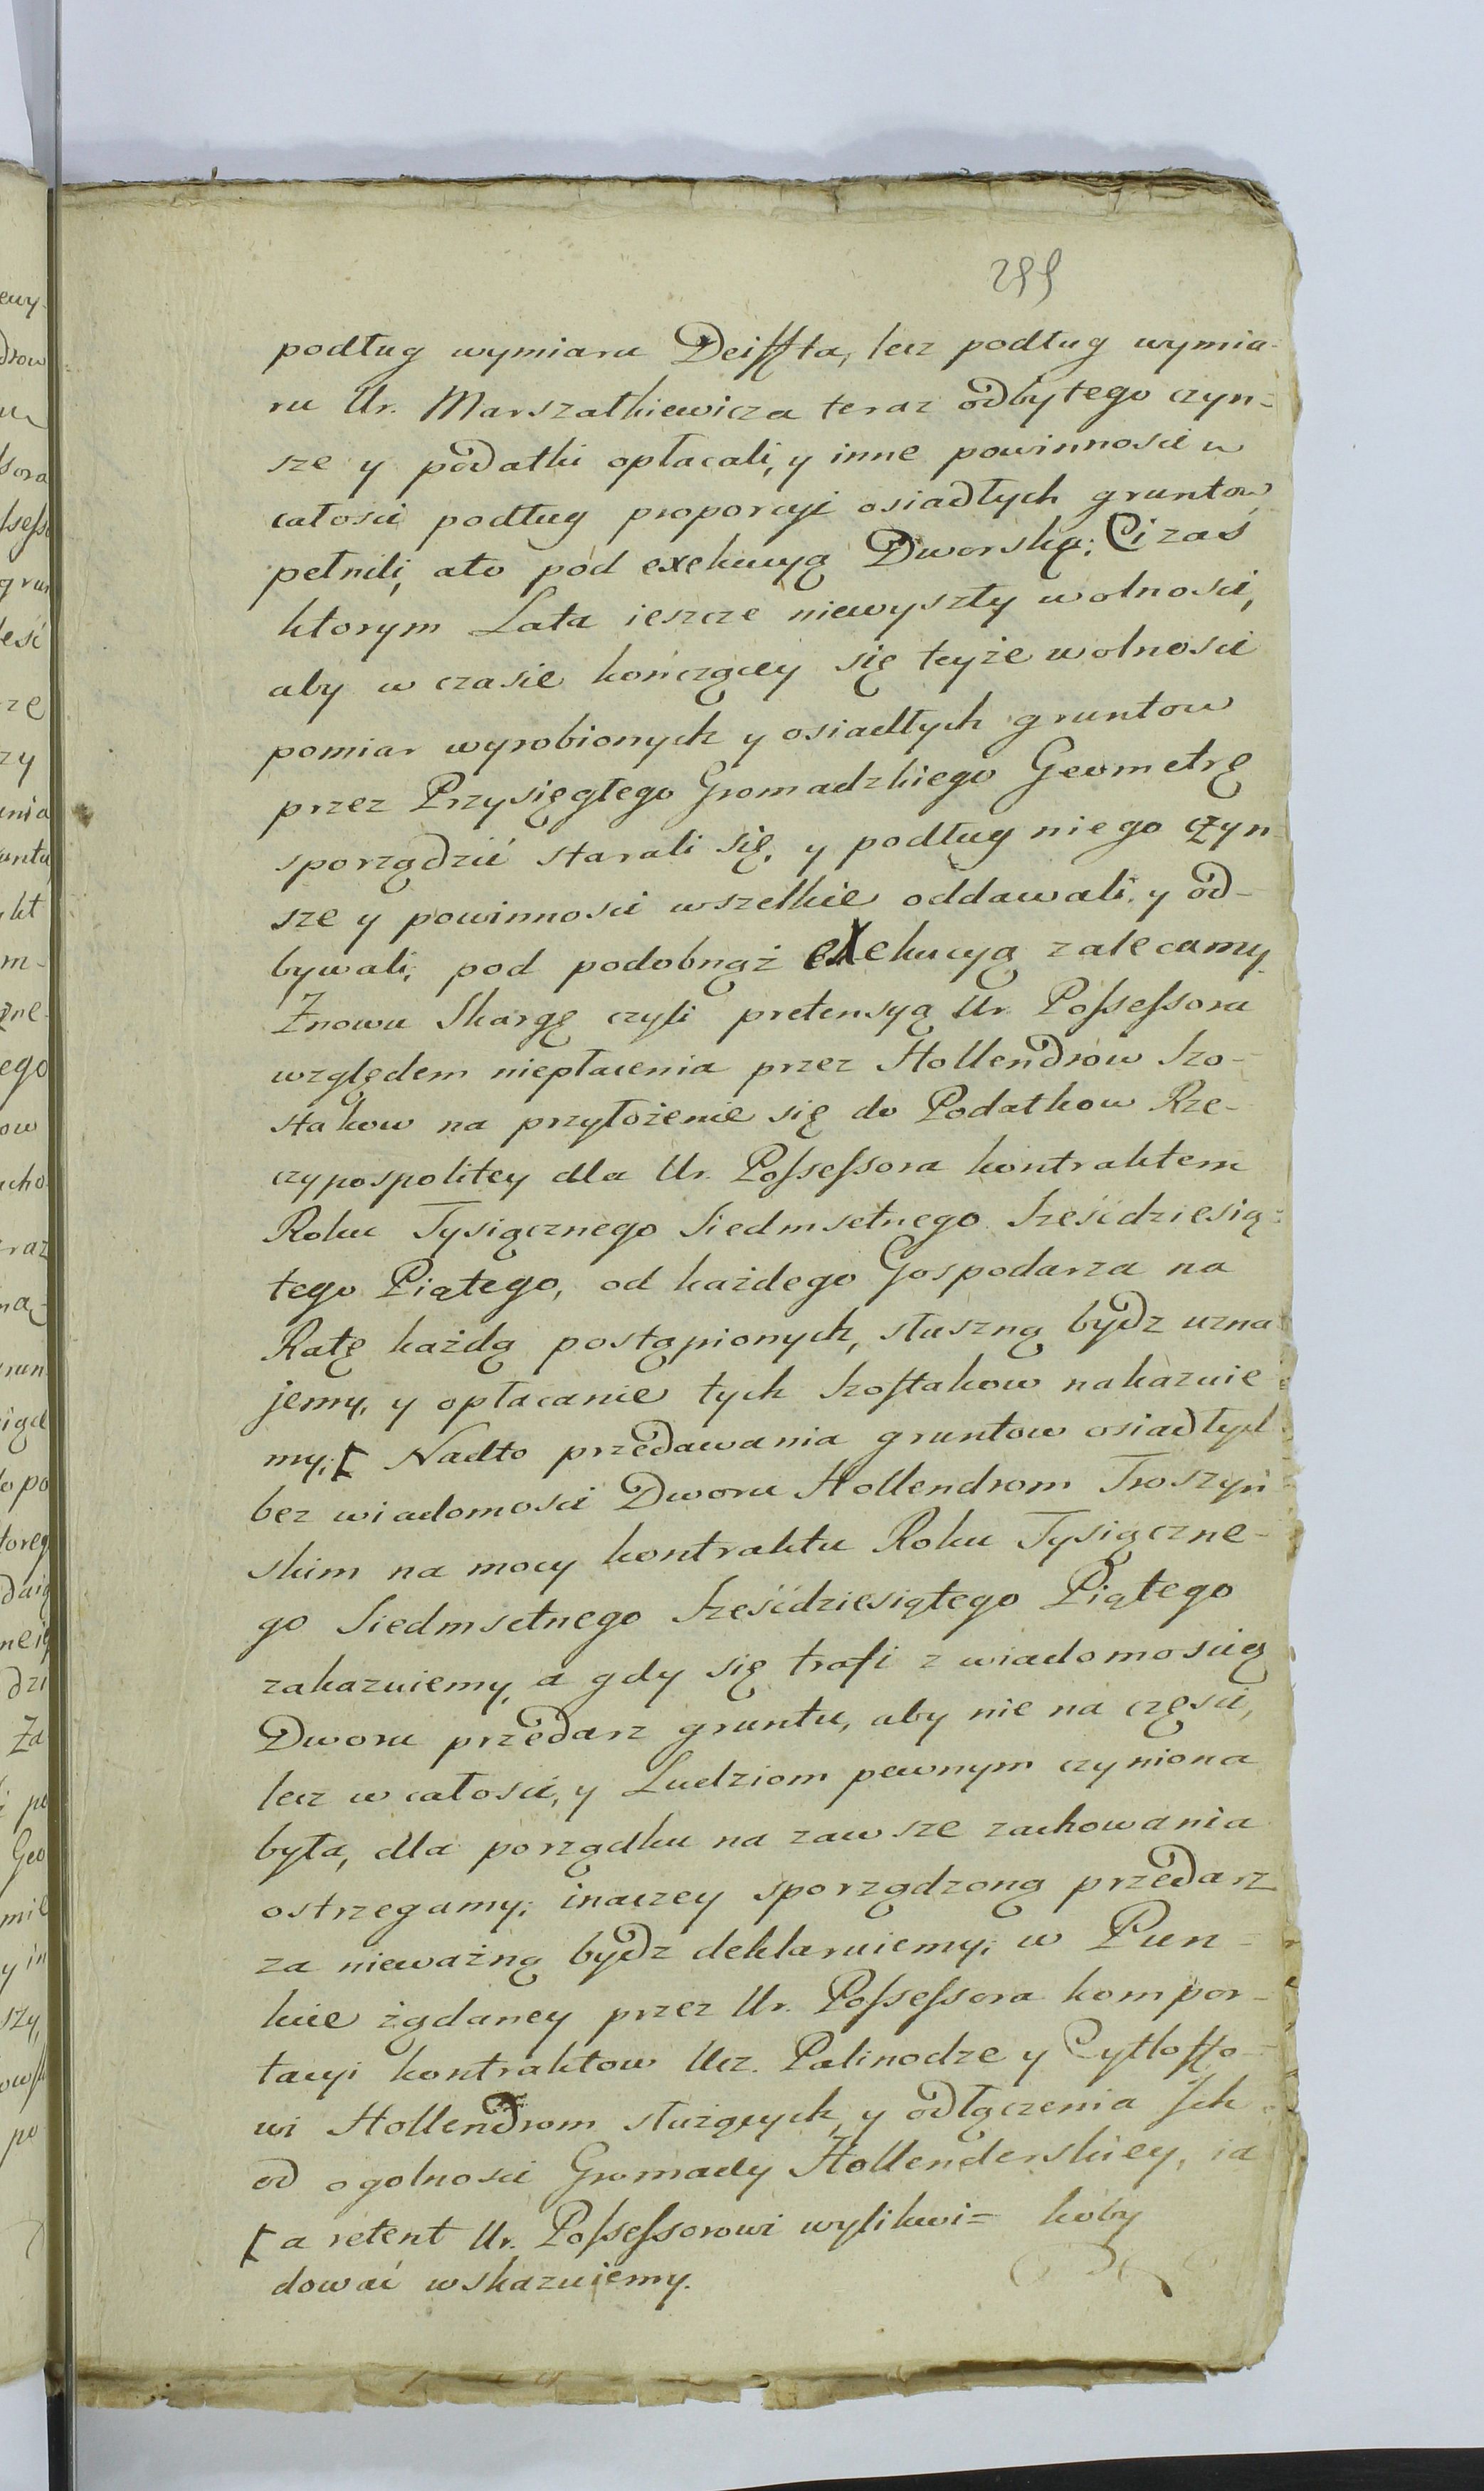 299
podług wymiaru Deiffta, lecz podług wymia-
ru Ur. Marszałkiewicza teraz odbytego czyn-
sze y podatki opłacali, y inne powinnosci w
całosci podług proporcyi osiadłych gruntow
pełnili, ato pod exekucyą Dworską; Ci zas
ktorym Lata ieszcze niewyszły wolnosci,
aby w czasie kończącey się teyże wolnosci
pomiar wyrobionych y osiadłych gruntow
przez Przysięgłego Gromadzkiego Geometrę
sporządzić starali się, y podług niego czyn-
sze y powinnosci wszelkie oddawali, y od-
bywali; pod podobnąż exekucyą zalecamy.
Znowu Skargę czyli pretensyą Ur. Possessora
względem niepłacenia przez Hollendrow Szo-
stakow na przyłożenie się do Podatkow Rze-
czypospolitey dla Ur. Possessora kontraktem
Roku Tysiącznego Siedmsetnego Sześćdziesią-
tego Piątego, od każdego Gospodarza na
Ratę każdą postąpionych, słuszną bydz uzna
jemy, y opłacanie tych Szostakow nakazuie
my; [ Nadto przedawania gruntow osiadłych
bez wiadomosci Dworu Hollendrom Troszyń
skim na mocy kontraktu Roku Tysiączne-
go Siedmsetnego Sześćdziesiątego Piątego
zakazuiemy, a gdy się trafi z wiadomoscią
Dworu przedarz gruntu, aby nie na częsci,
lecz w całosci, y Ludziom pewnym czyniona
była, dla porządku na zawsze zachowania
ostrzegamy; inaczey sporządzoną przedarz
za nieważną bydz deklaruiemy; w Pun-
kcie żądaney przez Ur. Possessora kompor-
tacyi kontraktow Ucz. Palinodze y Cytloffo-
wi Hollendrom służących, y odłączenia Jch
od ogolnosci Gromady Hollenderskiey, ia
[ a retent Ur. Possessorowi wylikwi= koby
dować wskazuiemy.